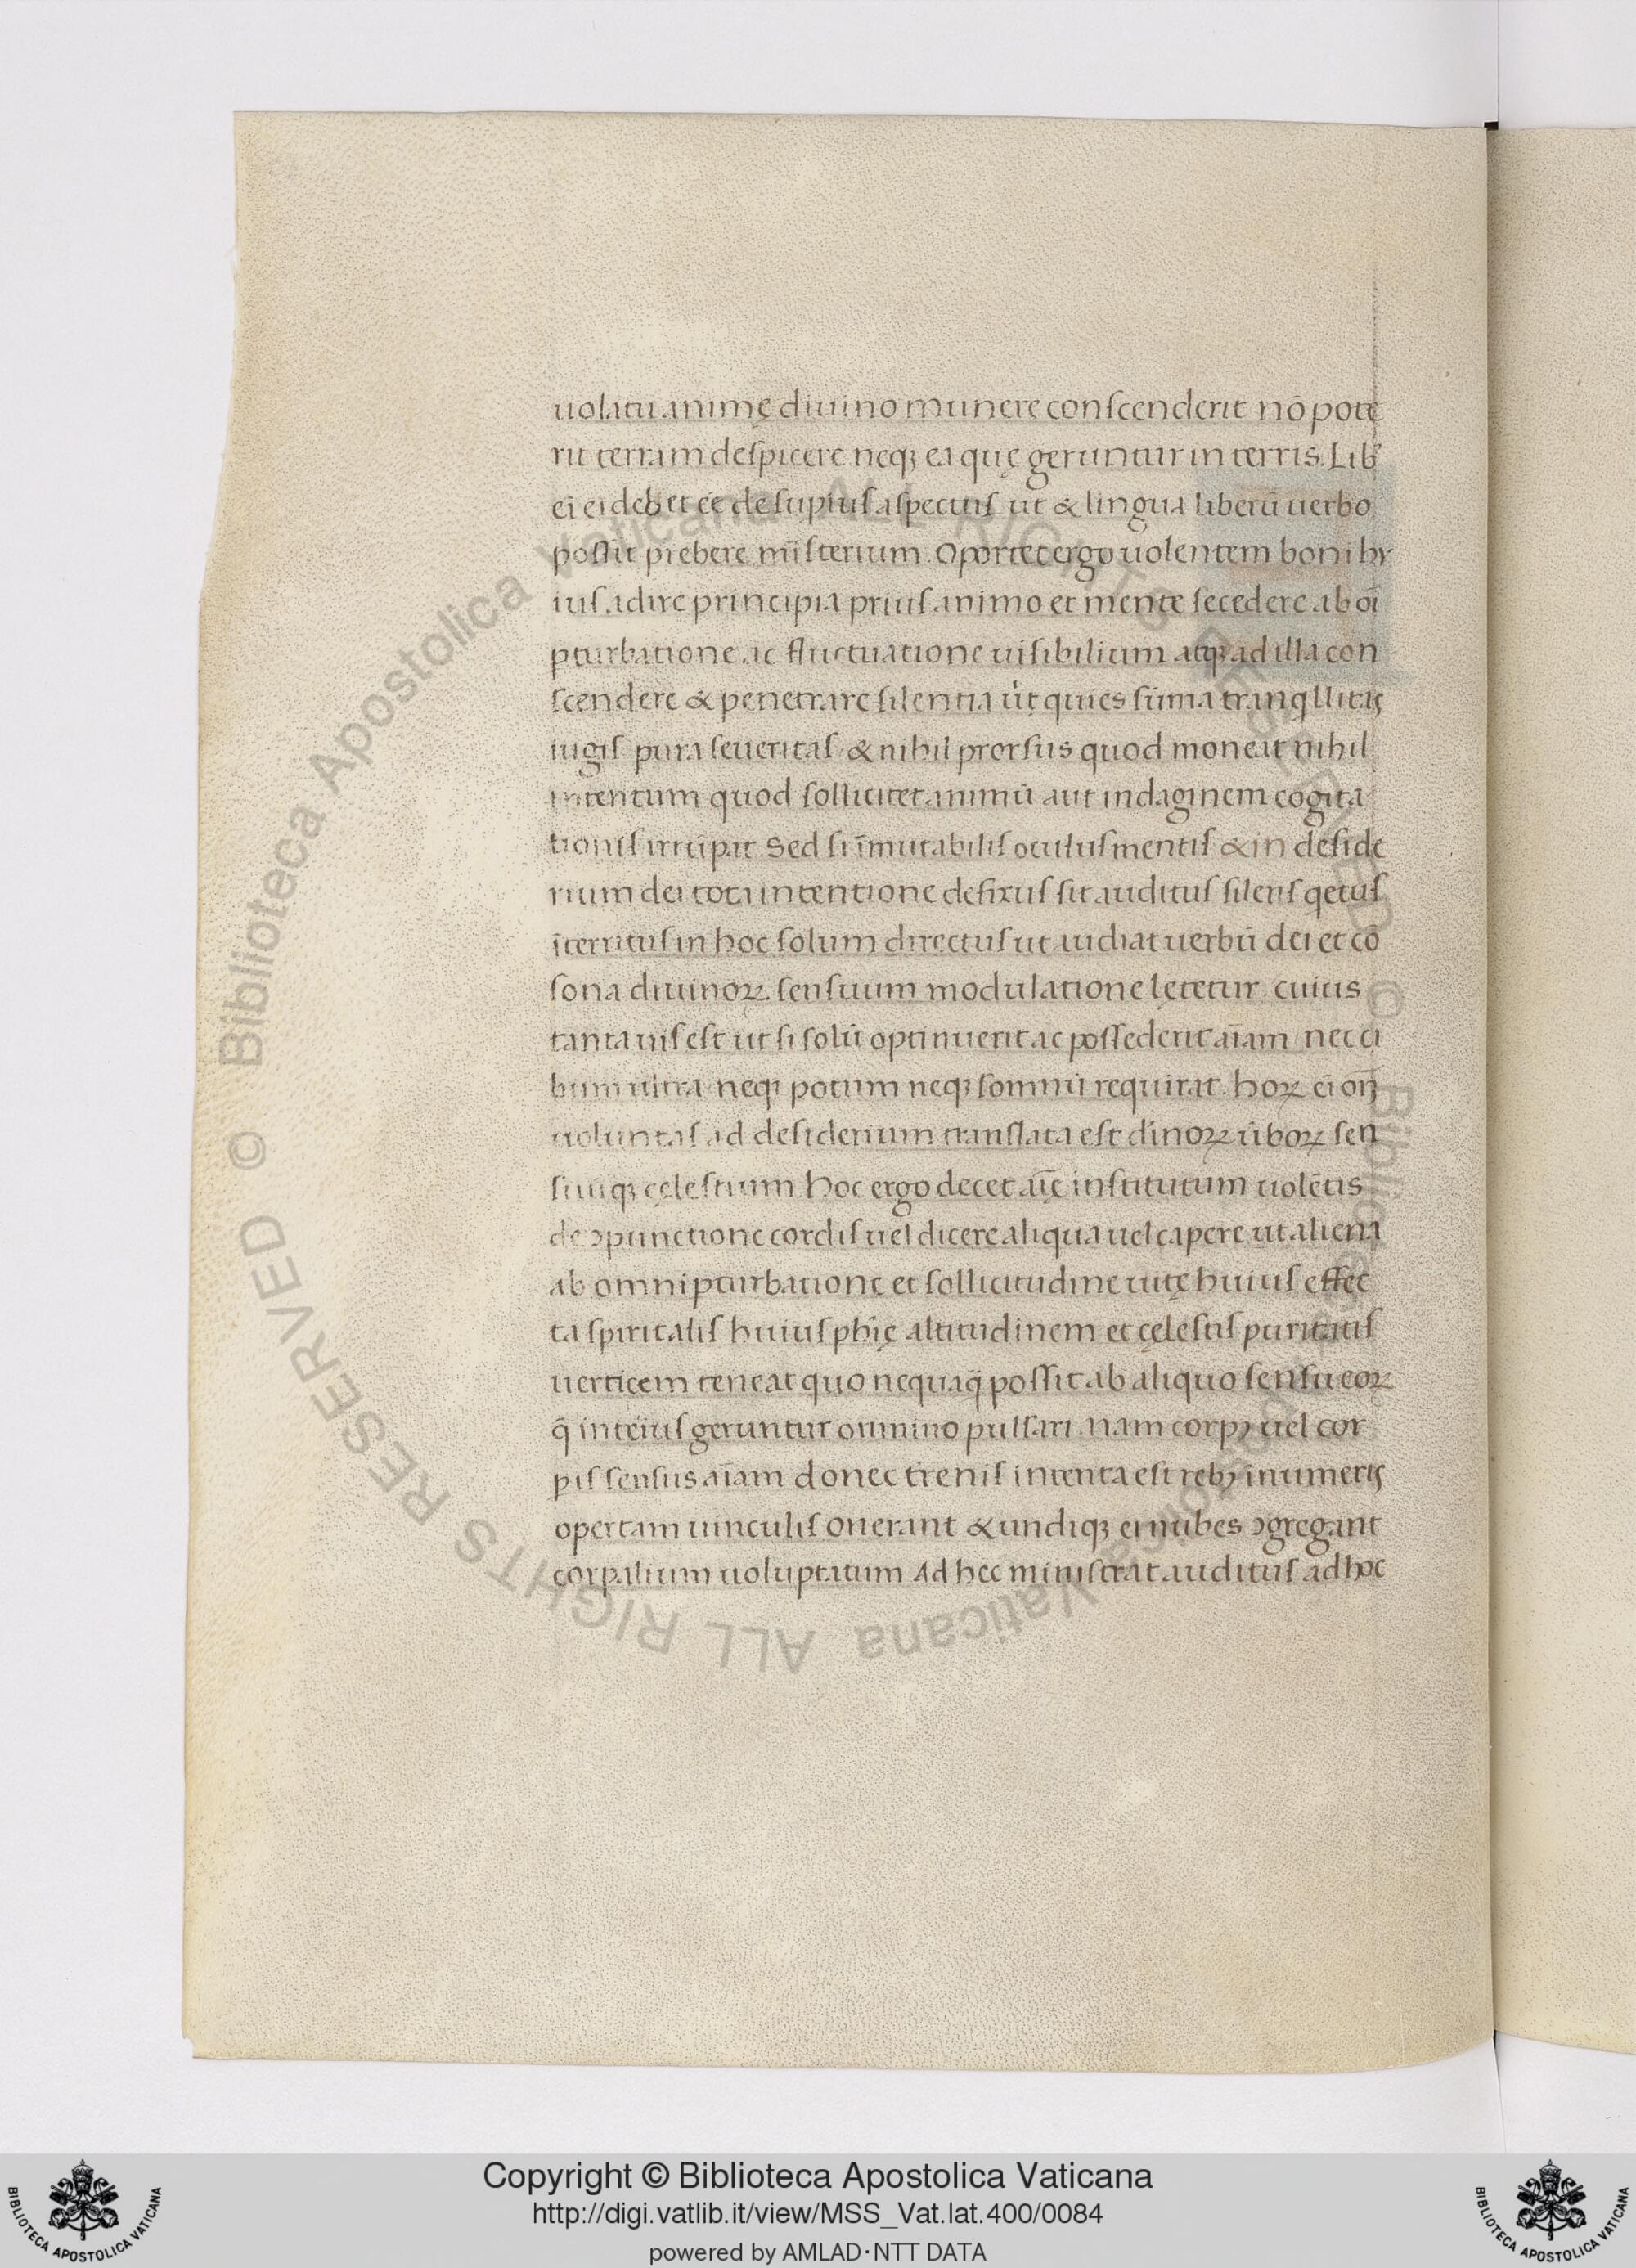 uolatu animę diuino munere conscenderit nō pote
rit terram despicere neqꝫ ea quę geruntur in terris. Lib̄
ei ei debet eē desupius aspectus ut & lingua liberū uerbo
possit prebere misterium. Oportet ergo uolentem boni hu
ius adire principia prius animo et mente secedere ab oī
pturbatione ac fluctuatione uisibilium atqꝫ ad illa con
scendere & penetrare silentia quies sūma tranqllitas
iugis pura seueritas & nihil prorsus quod moneat nihil
intentum quod sollicitet animū aut indaginem cogita
tionis irrūpat. Sed si īmutabilis oculus mentis & in deside
rium dei tota intentione defixus sit auditus silens qetus
īterritus in hoc solum directus ut audiat uerbū dei et cō
sona diuinoꝝ sensuum modulatione lętetur. cuius
tanta uis est ut si solū optinuerit ac possederit aīam nec ci
bum ultra neqꝫ potum neqꝫ somnū requirat. hoꝝ ei
uoluntas ad desiderium translata est dinoꝝ ūboꝝ sen
suuqꝫ cęlestium. Hoc ergo decet institutum uolētis
de ꝯpunctione cordis uel dicere aliqua uel capere ut aliena
ab omni pturbatione et sollicitudine uitę huius effec
ta spiritalis huius phię altitudinem et cęlestis puritatis
uerticem teneat quo nequaq̄ possit ab aliquo sensu eoꝝ
q̄ inteius geruntur omnino pulsari. Nam corpꝰ uel cor
pis sensus aīam donec trenis intenta est rebꝫ īnumeris
opertam uinculis onerant & undiqꝫ ei nubes ꝯgregant
corpalium uoluptatum. Ad hec ministrat auditus ad hoc
© Biblioteca Apostolica Vaticana ALL RIGHTS RESERVED © Biblioteca Apostolica Vaticana ALL RIGHTS RESERVED
Copyright © Biblioteca Apostolica Vaticana
http://digi.vatlib.it/view/MSS_Vat.lat.400/0084
powered by AMLAD·NTT DATA
BIBLIOTECA APOSTOLICA VATICANA
BIBLIOTECA APOSTOLICA VATICANA